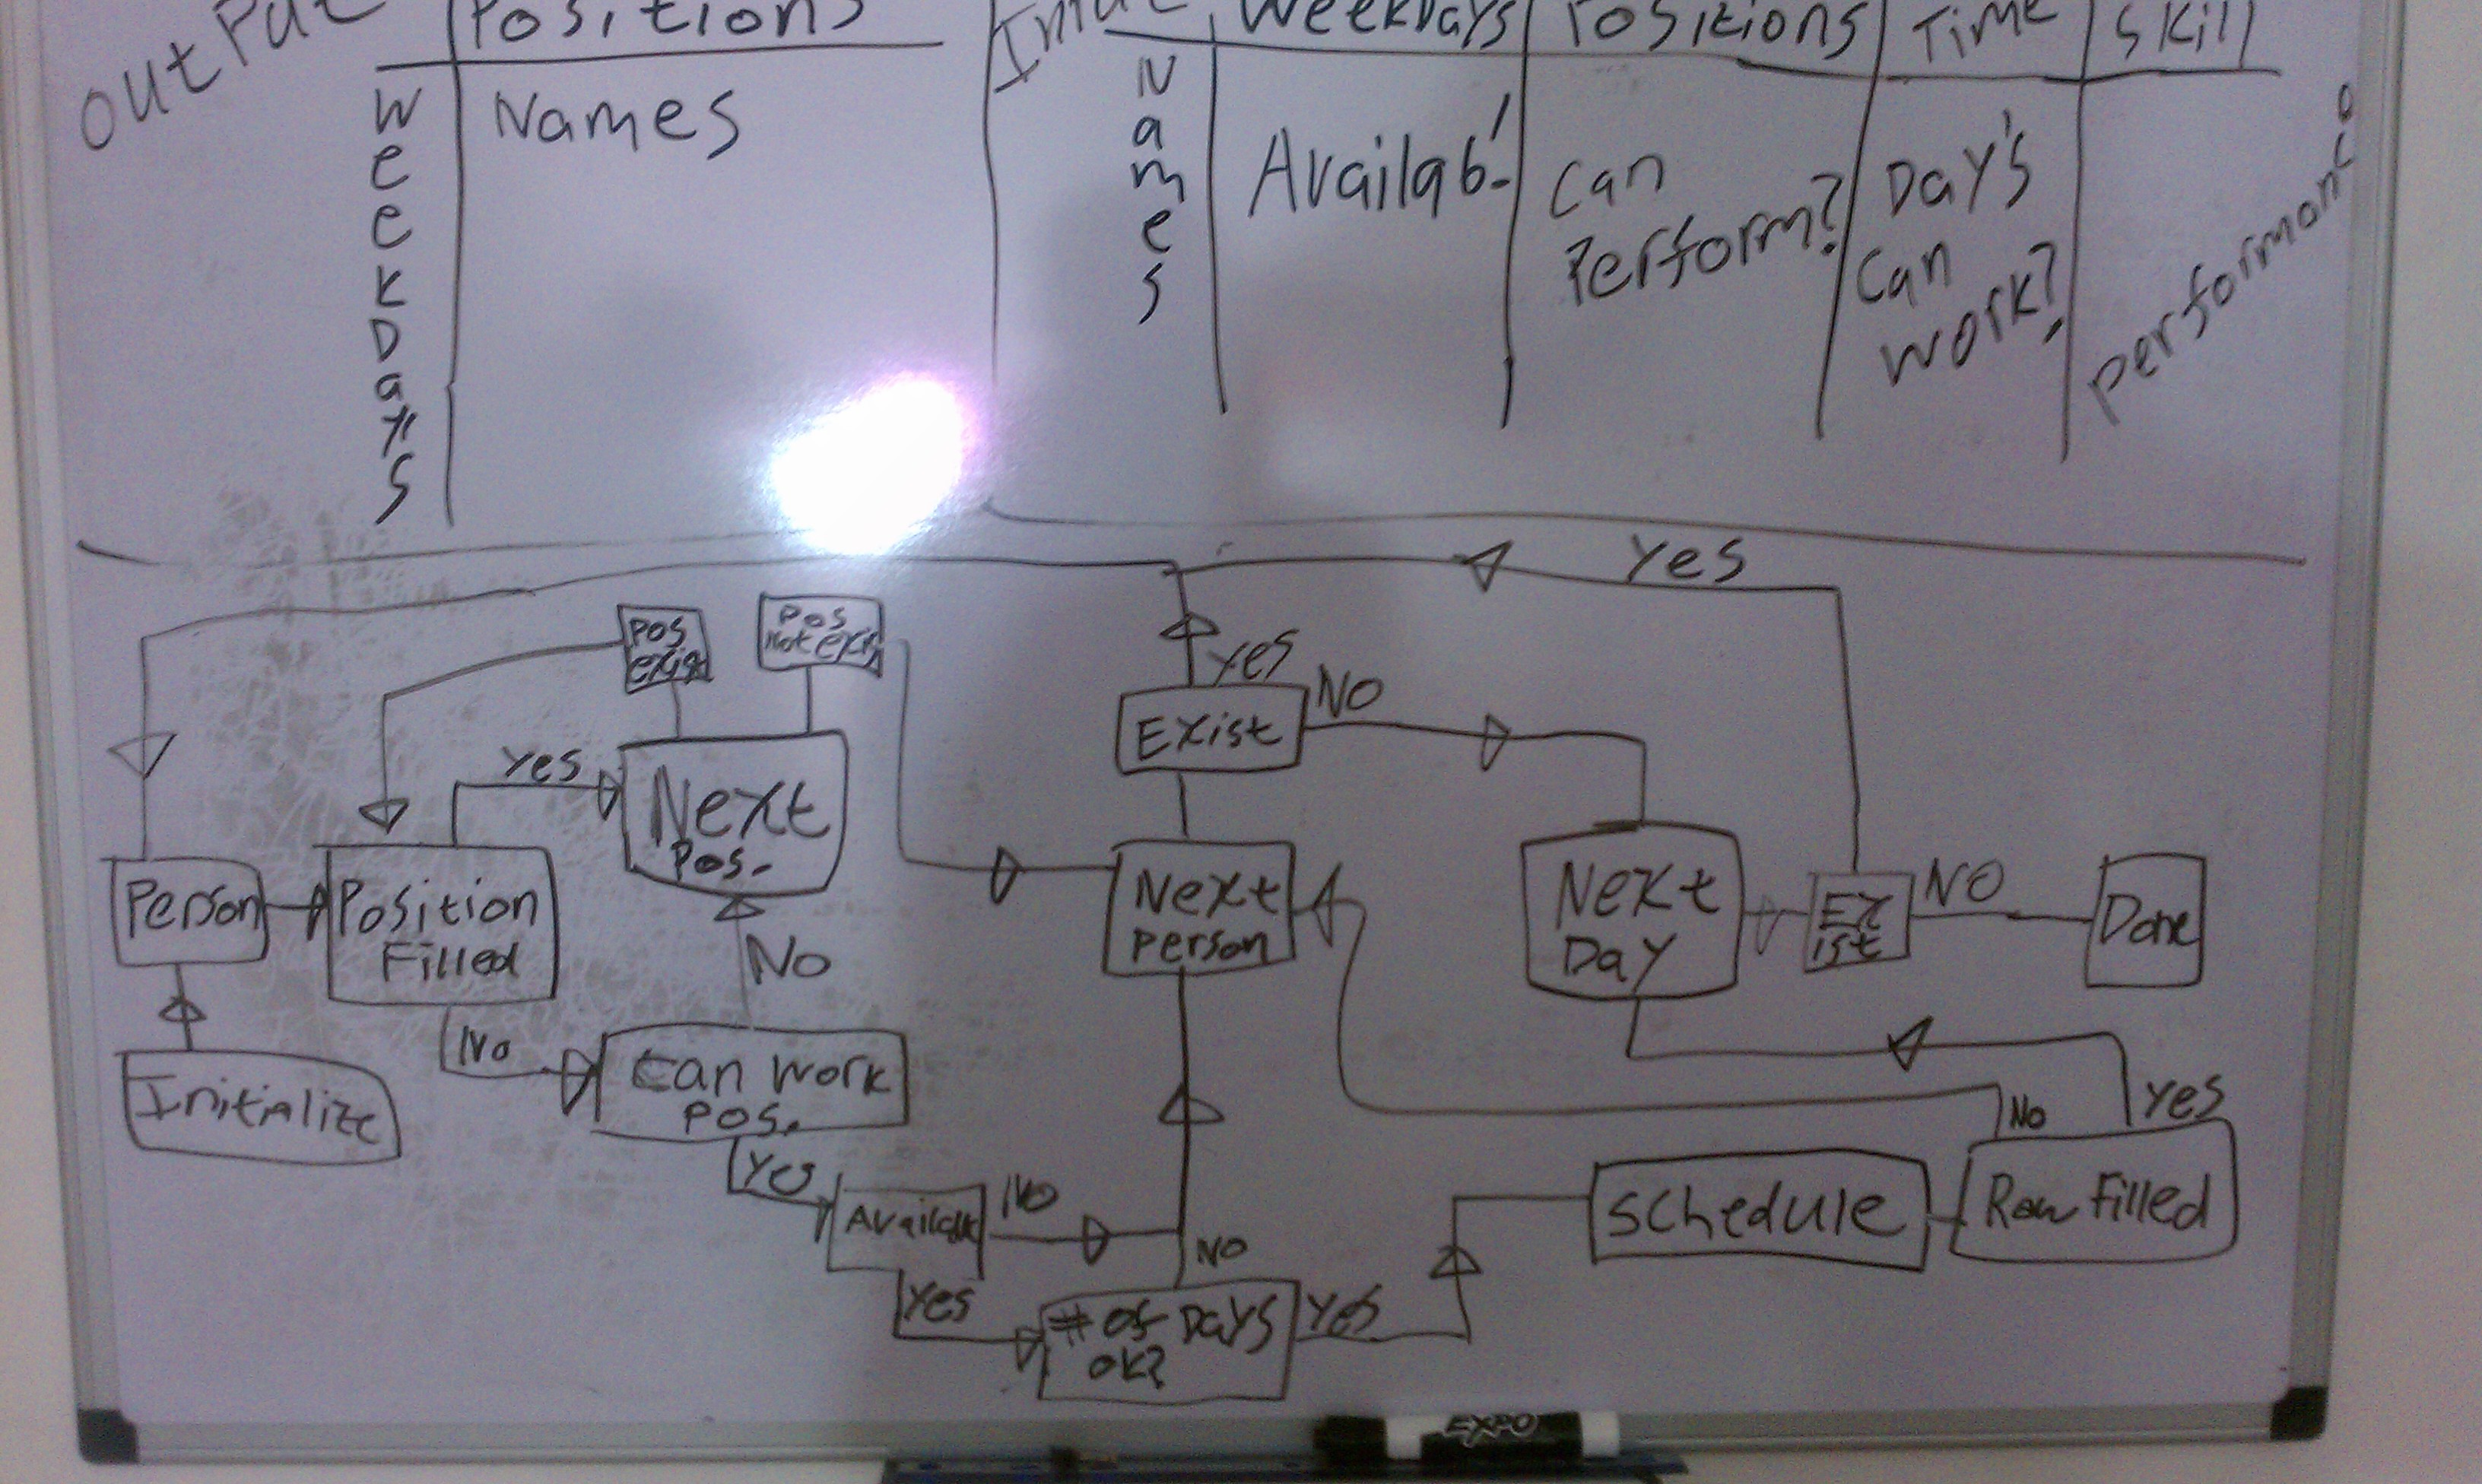 OutPut
Positions
WeekDays
Names
Weekdays
Positions
Time
Skill
Names
Availab.
Can
Perform?
Day's
Can
Work?
Yes
Pos
exist
Pos
Not exist
Yes
NO
Exist
Yes
Next
Pos.
Person
Position
Filled
Next
Person
Next
Day
Ex
ist
NO
Done
No
No
Can Work
Pos.
Initialize
Yes
No
Yes
Yes
No
Available
No
Schedule
Row Filled
Yes
# of Days
ok?
Yes
EXPO